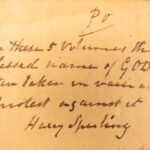 Po
these 5 Volumes th
lessed name of GOD
en taken in vain a
protest against it
Harry Sperling